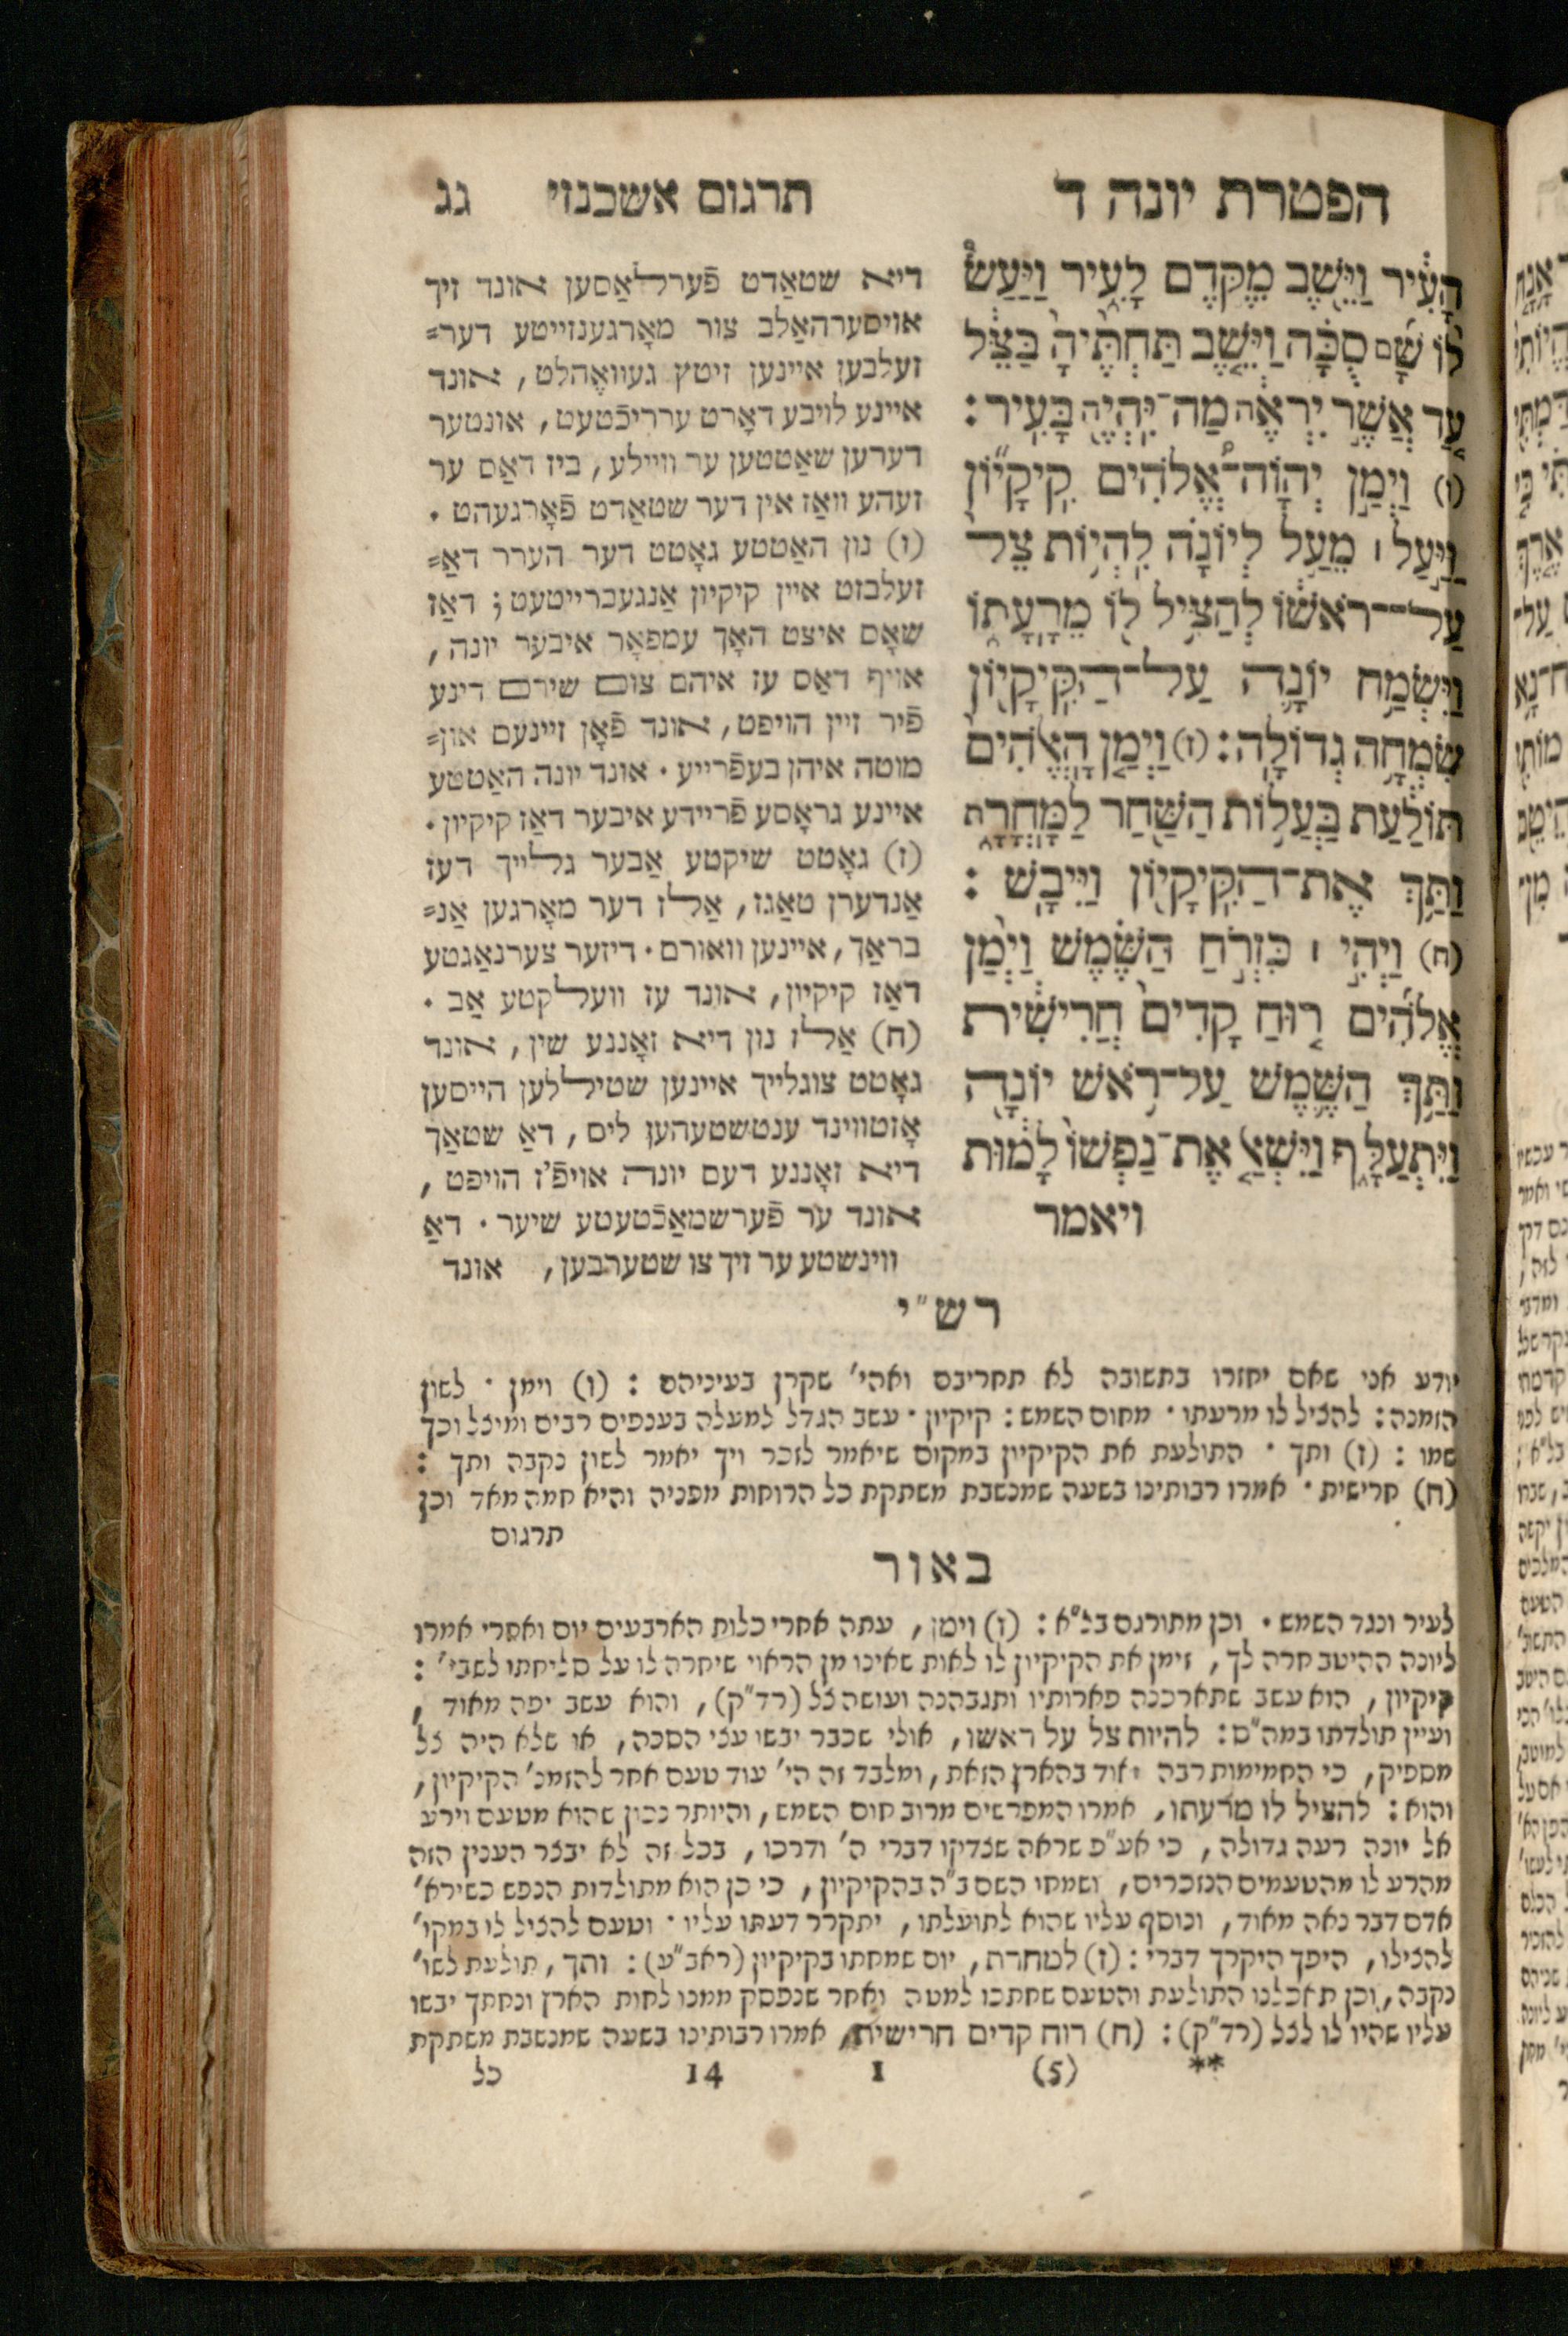 הפטרת יונה ד
תרגום אשכנזי
נג
הָעִ֔יר וַיֵּ֖שֶׁב מִקֶּ֣דֶם לָעִ֑יר וַיַּעַשׂ֩
ל֨וֹ שָׁ֜ם סֻכָּ֗ה וַיֵּ֤שֶׁב תַּחְתֶּ֙יהָ֙ בַּצֵּ֔ל
עַ֚ד אֲשֶׁ֣ר יִרְאֶ֔ה מַה־יִּהְיֶ֖ה בָּעִֽיר׃
(ו) וַיְמַ֣ן יְהוָֽה־אֱ֠לֹהִים קִֽיקָי֞וֹן
וַיַּ֣עַל ׀ מֵעַ֣ל לְיוֹנָ֗ה לִֽהְי֥וֹת צֵל֙
עַל־־רֹאשׁ֔וֹ לְהַצִּ֥יל ל֖וֹ מֵרָֽעָת֑וֹ
וַיִּשְׂמַ֥ח יוֹנָ֛ה עַל־הַקִּֽיקָי֖וֹן
שִׂמְחָ֥ה גְדוֹלָֽה׃ (ז) וַיְמַ֤ן הָֽאֱלֹהִים֙
תּוֹלַ֔עַת בַּעֲל֥וֹת הַשַּׁ֖חַר לַֽמָּחֳרָ֑ת
וַתַּ֥ךְ אֶת־הַקִּֽיקָי֖וֹן וַיִּיבָֽשׁ׃
(ח) וַיְהִ֣י ׀ כִּזְרֹ֣חַ הַשֶּׁ֗מֶשׁ וַיְמַ֨ן
אֱלֹהִ֜ים ר֤וּחַ קָדִים֙ חֲרִישִׁ֔ית
וַתַּ֥ךְ הַשֶּׁ֛מֶשׁ עַל־רֹ֥אשׁ יוֹנָ֖ה
וַיִּתְעַלָּ֑ף וַיִּשְׁאַ֤ל אֶת־נַפְשׁוֹ֙ לָמ֔וּת
ויאמר
דיא שטאַדט פֿערלאַסען אונד זיך
אויסערהאַלב צור מאָרגענזייטע דער=
זעלבען איינען זיטץ געוואֶהלט, אונד
איינע לויבע דאָרט ערריכֿטעט, אונטער
דערען שאַטטען ער וויילע, ביז דאַס ער
זעהע וואַז אין דער שטאַדט פֿאָרגעהט.
(ו) נון האַטטע גאָטט דער הערר דאַ=
זעלבזט איין קיקיון אַנגעברייטעט; דאַז
שאָס איצט האָך עמפאָר איבער יונה,
אויף דאַס עז איהם צום שירם דינע
פֿיר זיין הויפט, אונד פֿאָן זיינעם און=
מוטה איהן בעפֿרייע. אונד יונה האַטטע
איינע גראָסע פֿריידע איבער דאַז קיקיון.
(ז) גאָטט שיקטע אַבער גלייך דעז
אַנדערן טאַגז, אַלז דער מאָרגען אַנ=
בראַך, איינען וואורם. דיזער צערנאַגטע
דאַז קיקיון, אונד עז וועלקטע אַב.
(ח) אַלז נון דיא זאָננע שין, אונד
גאָטט צוגלייך איינען שטיללען הייסען
אָזטווינד ענטשטעהען ליס, דאַ שטאַך
דיא זאָננע דעם יונה אויפֿ'ז הויפט,
אונד ער פֿערשמאַכֿטעטע שיער. דאַ
ווינשטע ער זיך צו שטערבען, אונד
רש"י
יודע אני שאם יחזרו בתשובה לא תחריבם ואהי' שקרן בעיניהם: (ו) וימן. לשון
הזמנה: להציל לו מרעתו. מחום השמש: קיקיון. עשב הגדל למעלה בענפים רבים ומיצל וכך
שמו: (ז) ותך. התולעת את הקיקיון במקום שיאמר לזכר ויך יאמר לשון נקבה ותך:
(ח) חרישית. אמרו רבותינו בשעה שמנשבת משתקת כל הרוחות מפניה והיא חמה מאד וכן
תרגום
באור
לעיר וכנגד השמש. וכן מתורגם בל"א: (ו) וימן, עתה אחרי כלות הארבעים יום ואחרי אמרו
ליונה ההיטב חרה לך, זימן את הקיקיון לו לאות שאינו מן הראוי שיחרה לו על סליחתו לשבי':
קיקיון, הוא עשב שתארכנה פארותיו ותגבהנה ועושה צל (רד"ק), והוא עשב יפה מאוד,
ועיין תולדתו במה"ס: להיות צל על ראשו, אולי שכבר יבשו עצי הסכה, או שלא היה צל
מספיק, כי החמימות רבה מאוד בהארץ הזאת, ומלבד זה הי' עוד טעם אחר להזמנ' הקיקיון,
והוא: להציל לו מרעתו, אמרו המפרשים מרוב חום השמש, והיותר נכון שהוא מטעם וירע
אל יונה רעה גדולה, כי אע"פ שראה שצדקו דברי ה' ודרכו, בכל זה לא יבצר הענין הזה
מהרע לו מהטעמים הנזכרים, ושמחו השם ב"ה בהקיקיון, כי כן הוא מתולדות הנפש כשירא'
אדם דבר נאה מאוד, ונוסף עליו שהוא לתועלתו, יתקרר דעתו עליו. וטעם להציל לו במקו'
להצילו, היפך היקרך דברי: (ז) למחרת, יום שמחתו בקיקיון (ראב"ע): ותך, תולעת לשו'
נקבה, וכן תאכלנו התולעת והטעם שחתכו למטה ואחר שנפסק ממנו לחות הארץ ונחתך יבשו
עליו שהיו לו לצל (רד"ק): (ח) רוח קדים חרישית, אמרו רבותינו בשעה שמנשבת משתקת
** (5) I 14 כל